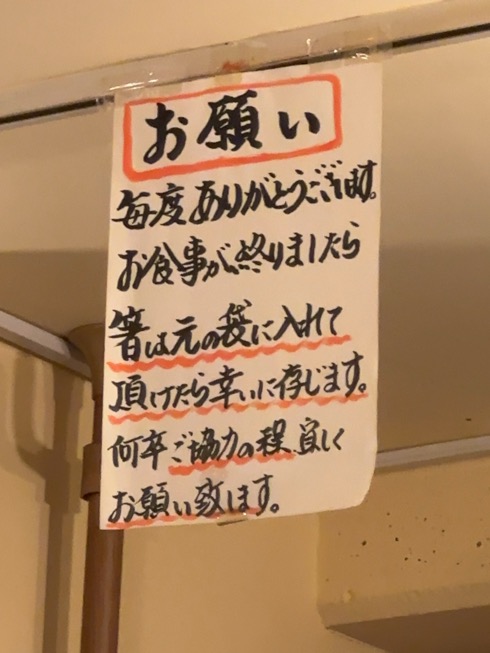 お願い
毎度ありがとうございます。
お食事が終りましたら
箸は元の袋に入れて
頂けたら幸いに存じます。
何卒ご協力の程、宜しく
お願い致します。